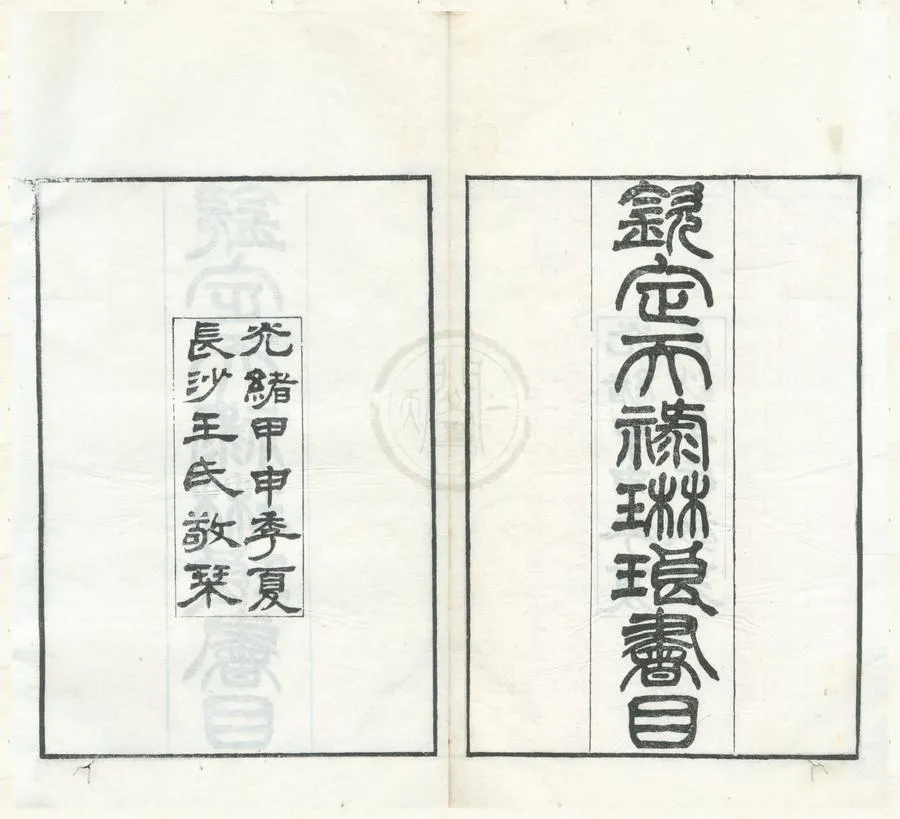 欽定天祿琳琅書目
光緒甲申季夏
長沙王氏敬栞